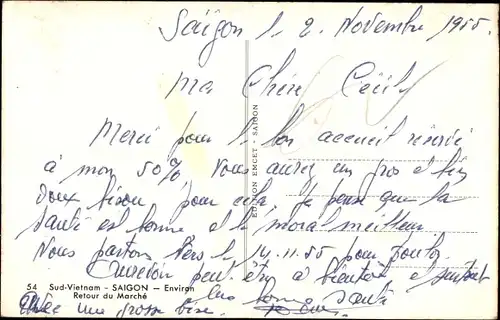 Saïgon le 2 Novembre 1955
Ma Chère Cécile
Merci pour le bon accueil réservé
à mon 50% Vous aurez un gros et bien
doux bisou pour cela. Je pense que la
santé est bonne et le moral meilleur
Nous partons vers le 14.11.55 pour Toulon
Aurevoir peut être à bientôt et surtout
bonne santé
Avec une grosse bise.
EDITION EMCET - SAIGON
54 Sud-Vietnam - SAIGON — Environ
Retour du Marché